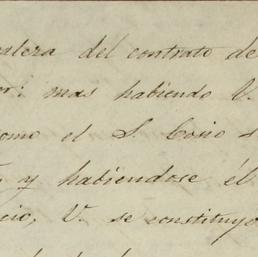 del contrato de
mas habiendo V.
como el S. Cosio s
y habiendose él
cio, V. se constituyo